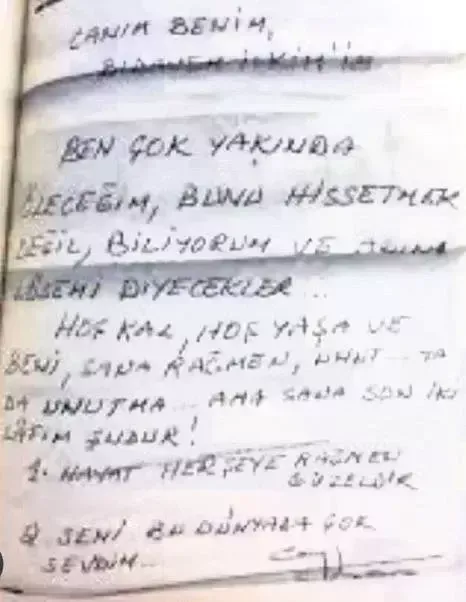 CANIM BENİM,
BİRİCİK İLKİM'İM
BEN ÇOK YAKINDA
ÖLECEĞİM, BUNU HİSSETMEK
DEĞİL, BİLİYORUM VE ADINA
LÖSEMİ DİYECEKLER...
HOŞ KAL, HOŞ YAŞA VE
BENİ, SANA RAĞMEN, UNUT... YA
DA UNUTMA... AMA SANA SON İKİ
LÂFIM ŞUDUR!
1- HAYAT HERŞEYE RAĞMEN
GÜZELDİR
2) SENİ BU DÜNYADA ÇOK
SEVDİM...